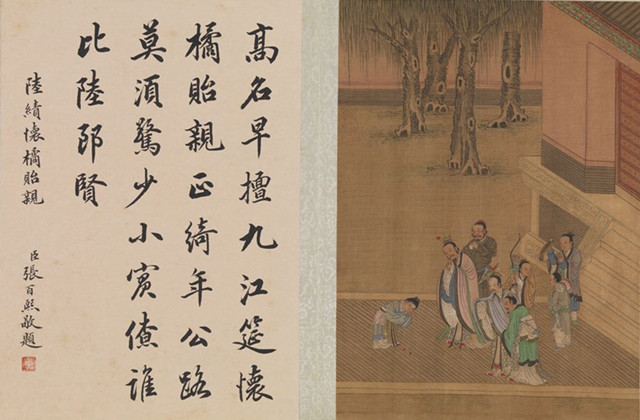 髙名早擅九江筵懷
橘貽親正綺年公路
莫須驚少小賓僚誰
比陸郎賢
陸績懷橘貽親
臣張百熙敬題